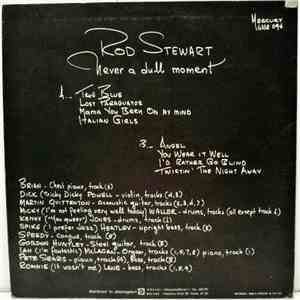 Rod Stewart
Never a dull moment
MERCURY
A_ True Blue
Lost Paraguayos
Mama You Been On My Mind
Italian Girls
B_ Angel
You Wear it Well
I'd Rather Go Blind
Twistin' The Night Away
piano, track
DICK (Tricky Dicky Powell - violin, tracks
MARTIN QUITTENTON - Acoustic guitar, tracks
MICKY (I'm not feeling very well today) WALLER - drums, tracks (all except track
JONES - drums, track
SPIKE (I prefer Jazz) HEATLEY - upright bass, track
SPEEDY - Congas, track
GORDON HUNTLEY - Steel guitar, track
IAN (I'm fantastic) McLAGAN - Organ, tracks piano, track
PETE SEARS - piano, tracks bass, track
RONNIE (it wasn't me) LANE - bass, tracks